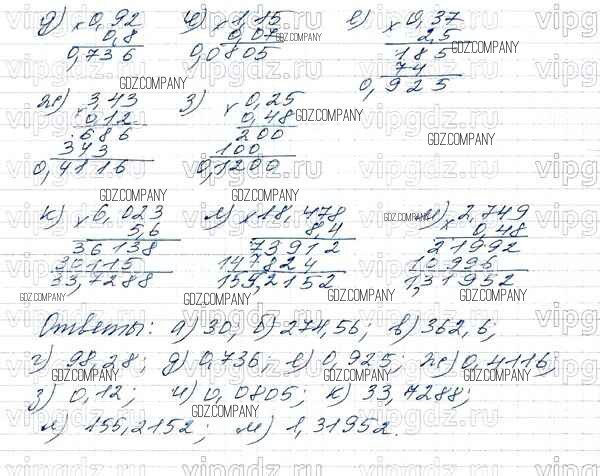 д) × 0,92   и) × 1,15   е) × 0,37
0,8   0,07   2,5
0,736   0,0805   185
74
0,925
ж) × 3,43   з) × 0,25
0,12   0,48
686   200
343   100
0,4116   0,1200
к) × 6,023   л) × 18,478   м) × 2,749
5,6   8,4   0,48
36138   73912   21992
30115   147824   10996
33,7288   155,2152   1,31952
Ответы: а) 30; б) 274,56; в) 362,6;
г) 98,28; д) 0,736; е) 0,925; ж) 0,4116;
з) 0,12; и) 0,0805; к) 33,7288;
л) 155,2152; м) 1,31952.
GDZ.COMPANY
vipgdz.ru